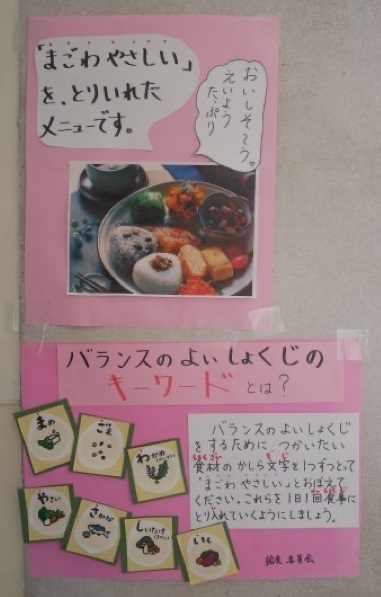 「まごわやさしい」
を、とりいれた
メニューです。
おいしそう。
えいよう
たっぷり
バランスのよいしょくじの
キーワードとは？
まめ
ごま
わかめ
やさい
さかな
しいたけ
いも
バランスのよいしょくじ
をするために、つかいたい
食材のかしら文字を1つずつとって
"まごわやさしい"とおぼえて
ください。これらを1日1回食事に
とり入れていくようにしましょう。
給食委員会